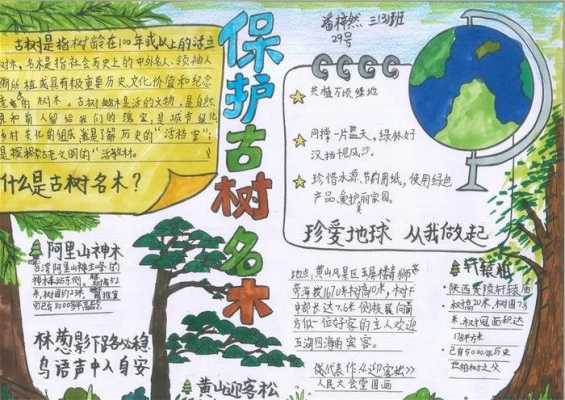 潘梓然 三(3)班
29号
保护古树名木
古树是指树龄在100年或以上的活立
木,名木是指社会历史上的中外名人、领袖人
植或具有极重要历史文化价值和纪念
的树木。古树名木是活的文物,是自然
和前人留给我们的瑰宝,是城市绿化
乡村美化的组成,是了解历史的"活档案";
是探根古老文明的"活教材。
什么是古树名木?
共植万顷绿地
同撑一片蓝天、绿林好
汉挡恨风沙。
珍惜水源、节约用纸,使用绿色
产品、爱护家园。
珍爱地球 从我做起
阿里山神木
台湾阿里山神木
林葱影下路必稳
鸟语声中人自安
黄山迎客松
地处黄山风景区玉屏楼青狮
海拔1670米树高10米,树干
中部长达7.6米侧枝展向前
方似一位好客的主人欢迎
五湖四海的宾客。
代表作《迎客松》
人民大会堂国画
轩辕柏
陕西黄陵轩辕庙
树高20米,树围7.8
米,树冠面积达
178平方米
已有5000年历史
世界柏树之父